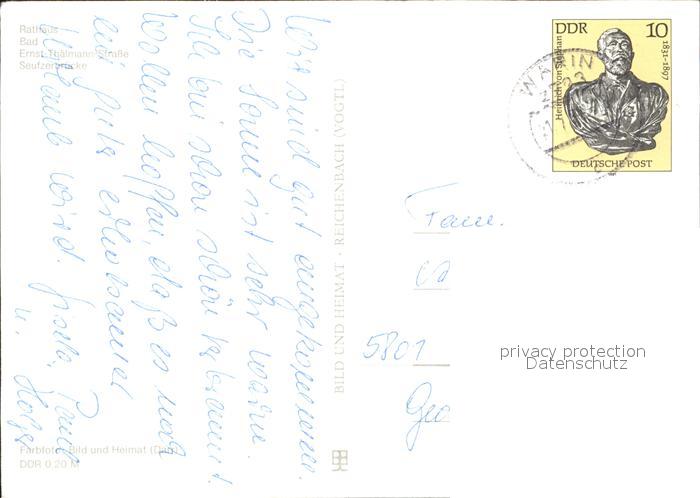 Rathaus
Bad
Ernst-Thälmann-Straße
Seufzerbrücke
Wir sind gut angekommen.
Die Sonne ist sehr warm.
Ich bin schon schön gebräunt.
Wollen hoffen, daß es noch
ein guter erholsamer
Urlaub wird. Gisela, Paul
u. Holger
Farbfoto: Bild und Heimat
DDR 0,20 M
BILD UND HEIMAT · REICHENBACH (VOGTL)
DDR 10
Heinrich von Stephan
1831-1897
DEUTSCHE POST
WARIN
Fam.
5801
Geo
privacy protection
Datenschutz